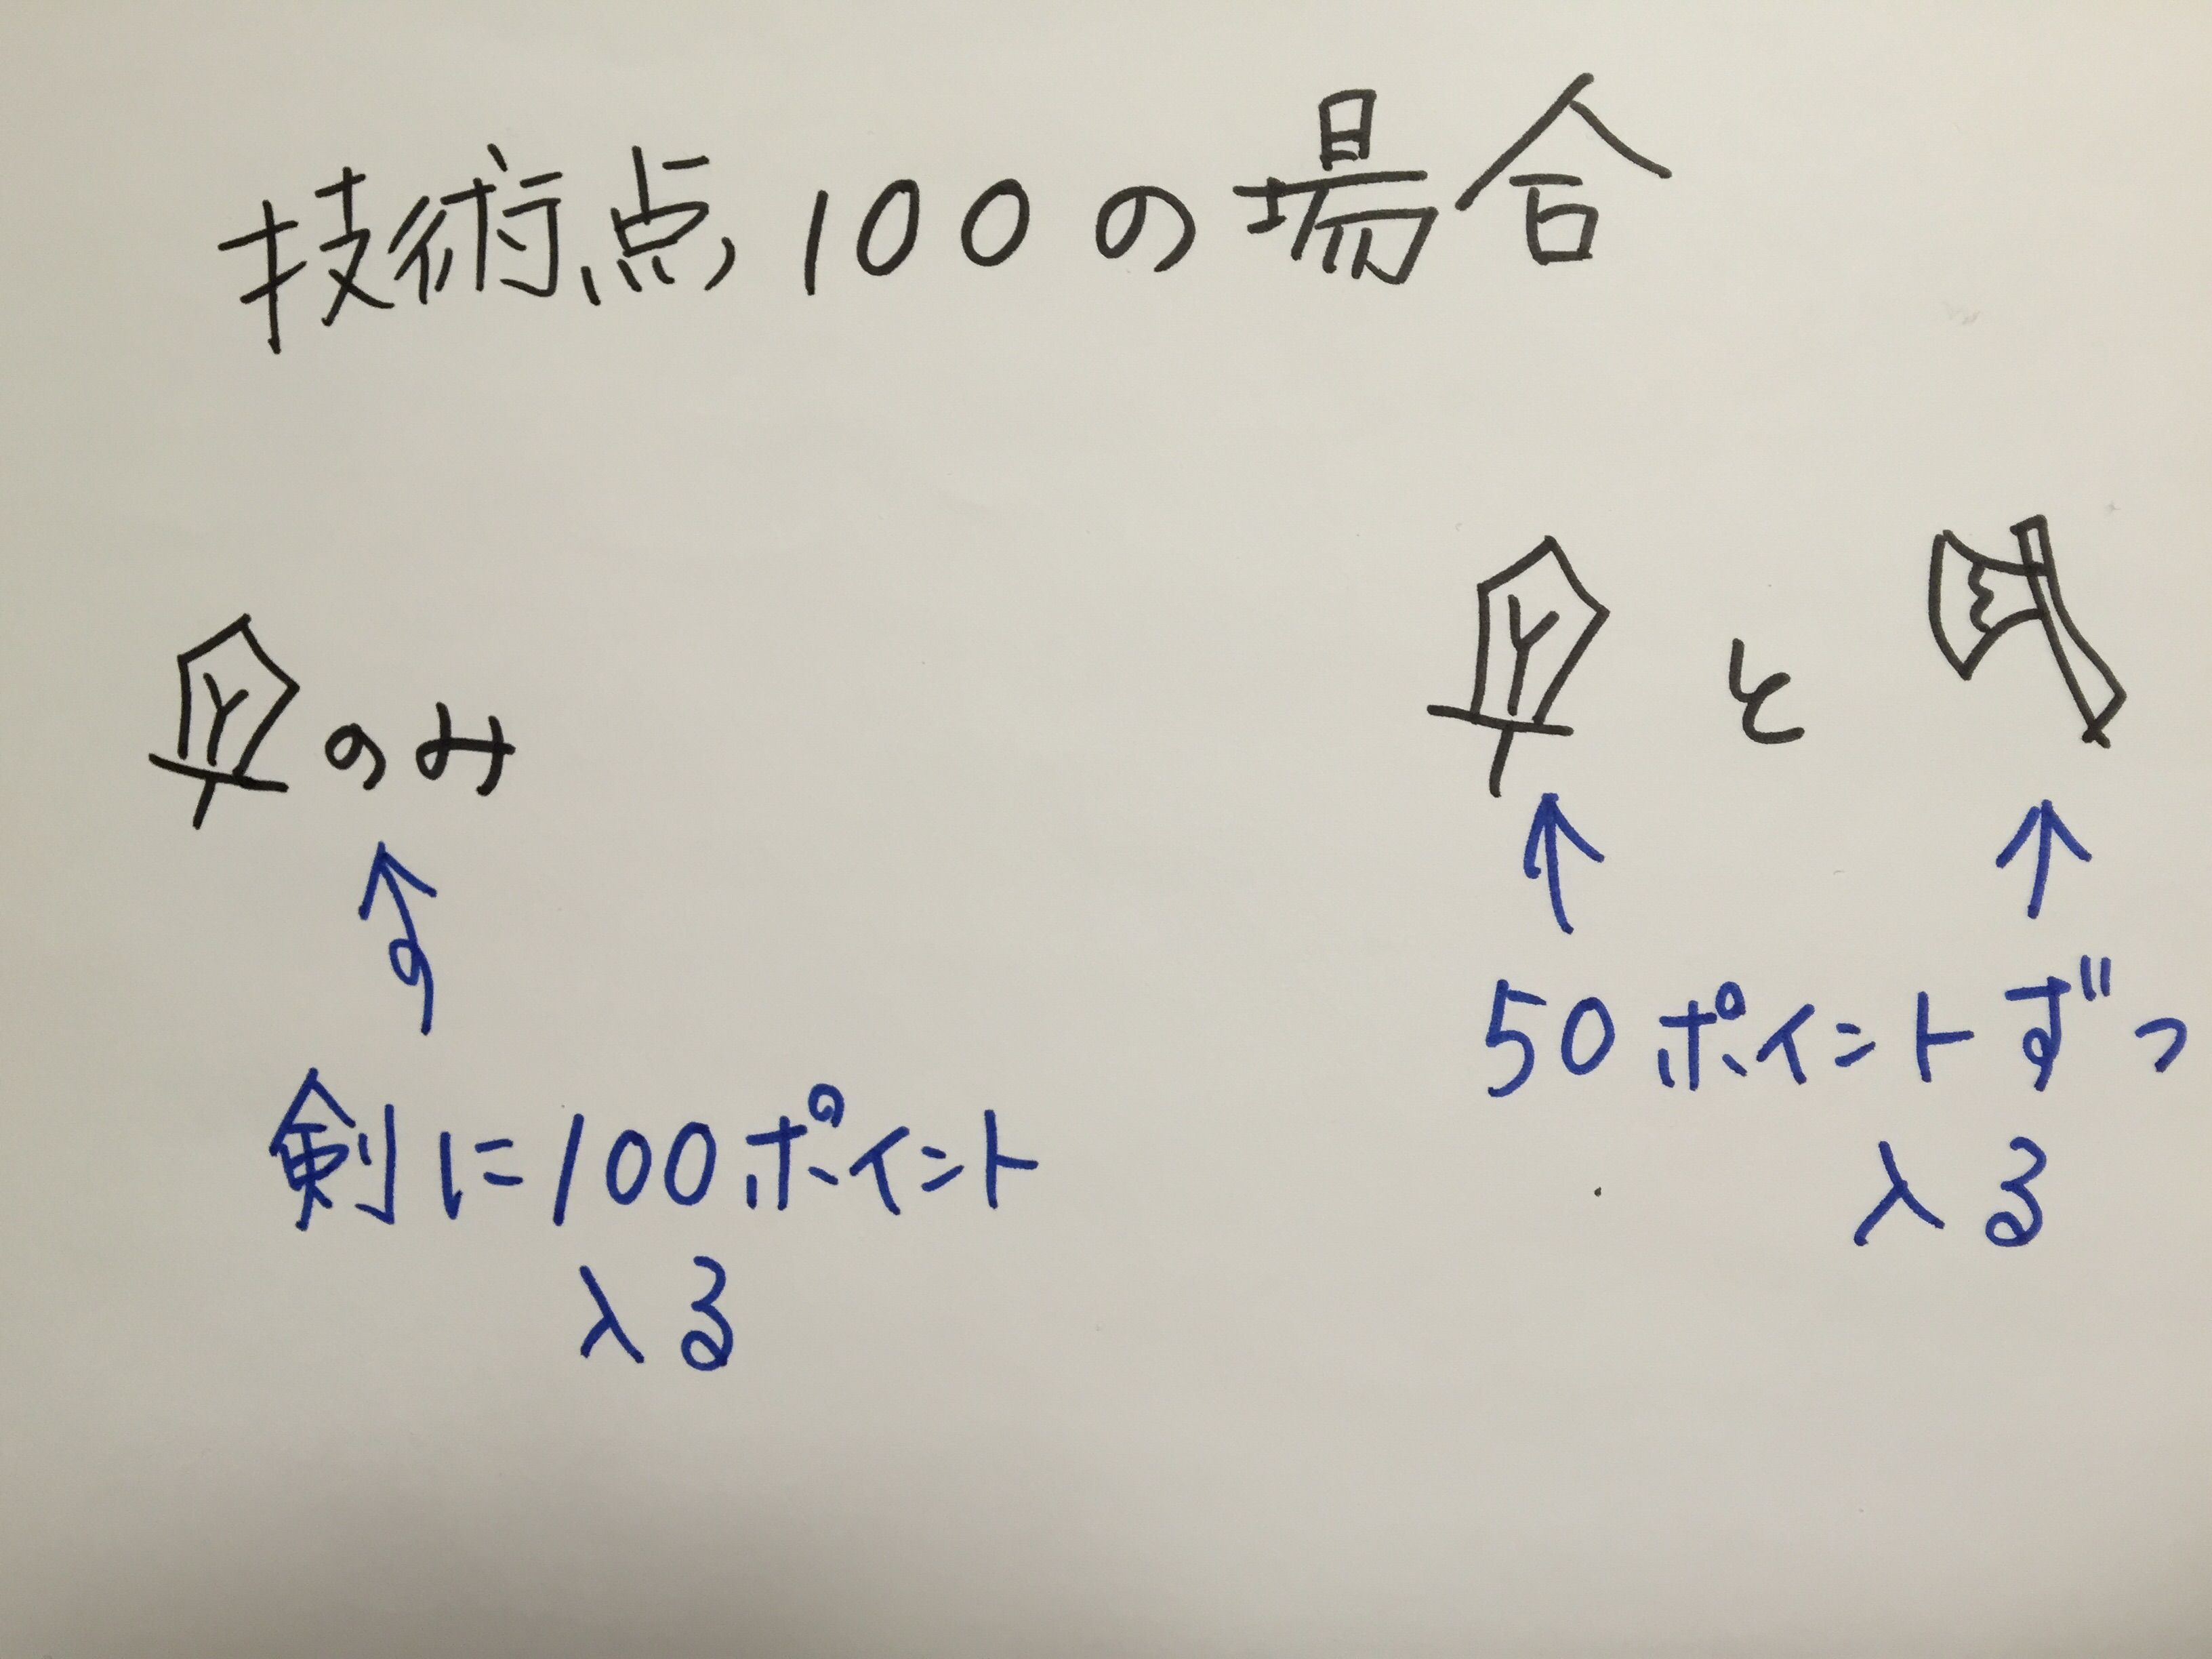 技術点100の場合
のみ
と
剣に100ポイント
入る
50ポイントずつ
入る